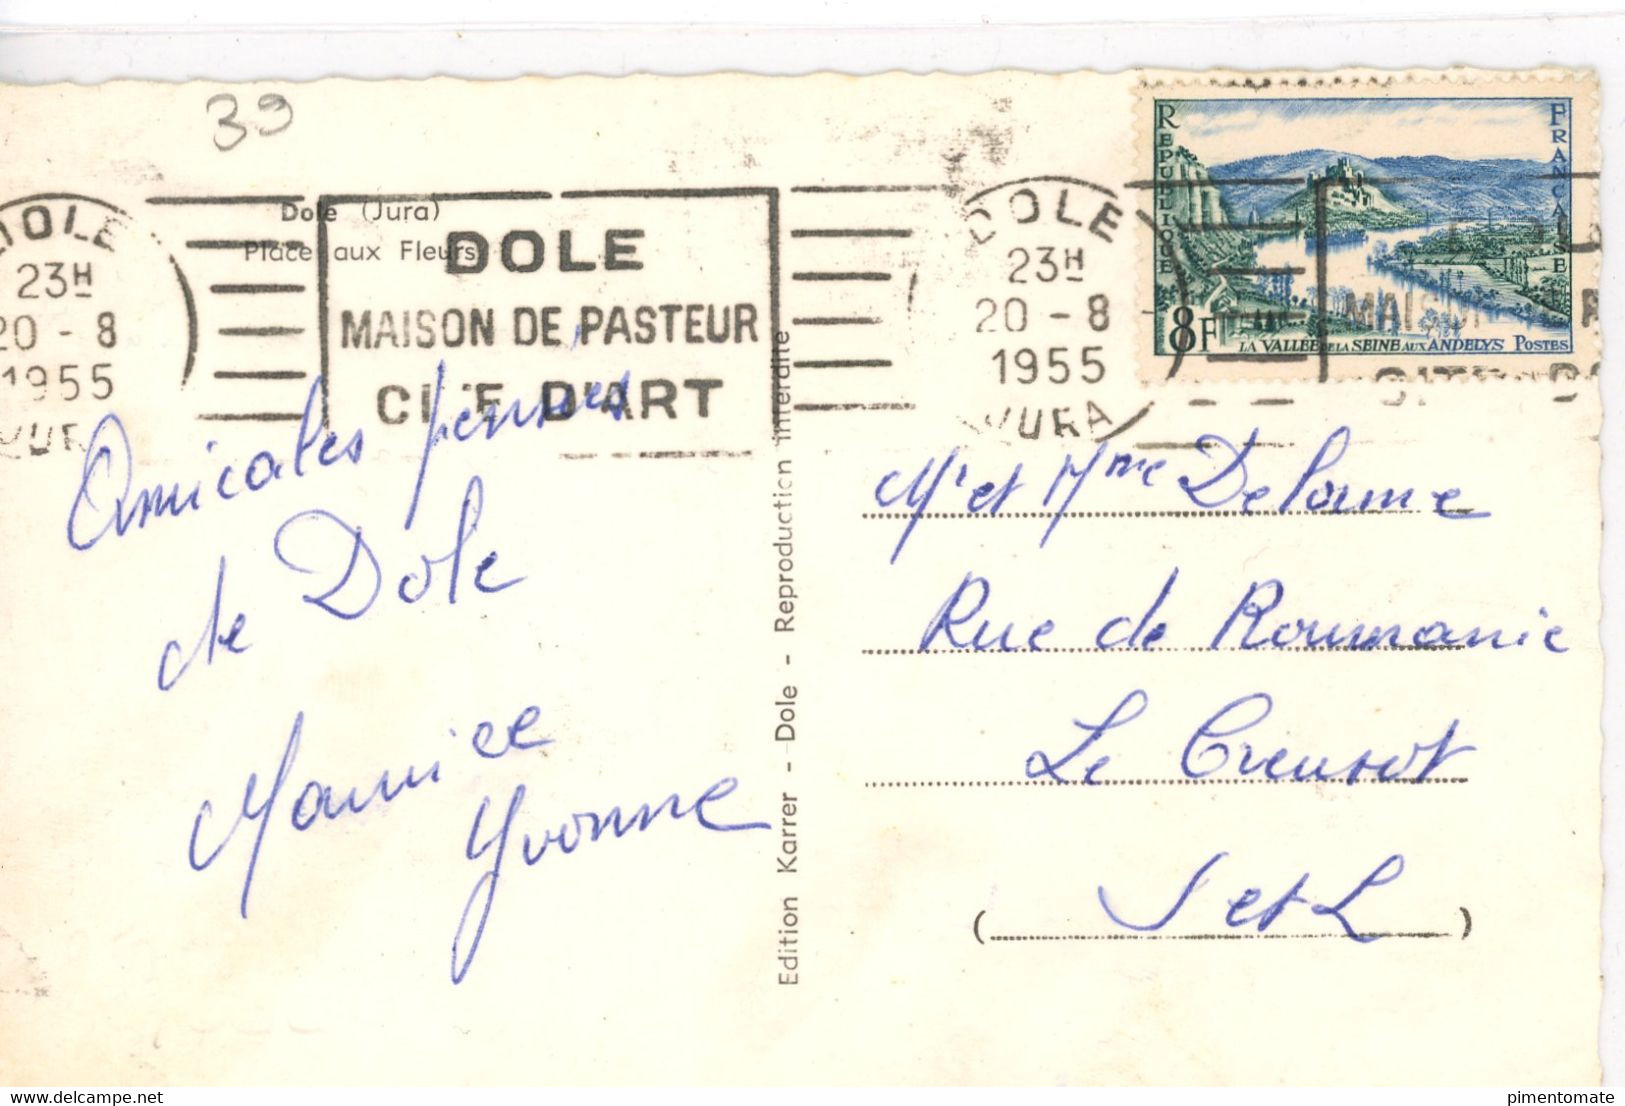 39
Dole (Jura)
Place aux Fleurs
DOLE
23H
20 - 8
1955
JURA
DOLE
MAISON DE PASTEUR
CITE D'ART
DOLE
23H
20 - 8
1955
JURA
REPUBLIQUE
FRANCAISE
8F
LA VALLEE DE LA SEINE AUX ANDELYS POSTES
MAISON
CITE D'
Amicales pensées
de Dole
Maurice
Yvonne
Edition Karrer - Dole - Reproduction interdite
Mr et Mme Delorme
Rue de Roumanie
Le Creusot
(S et L)
delcampe.net
pimentomate